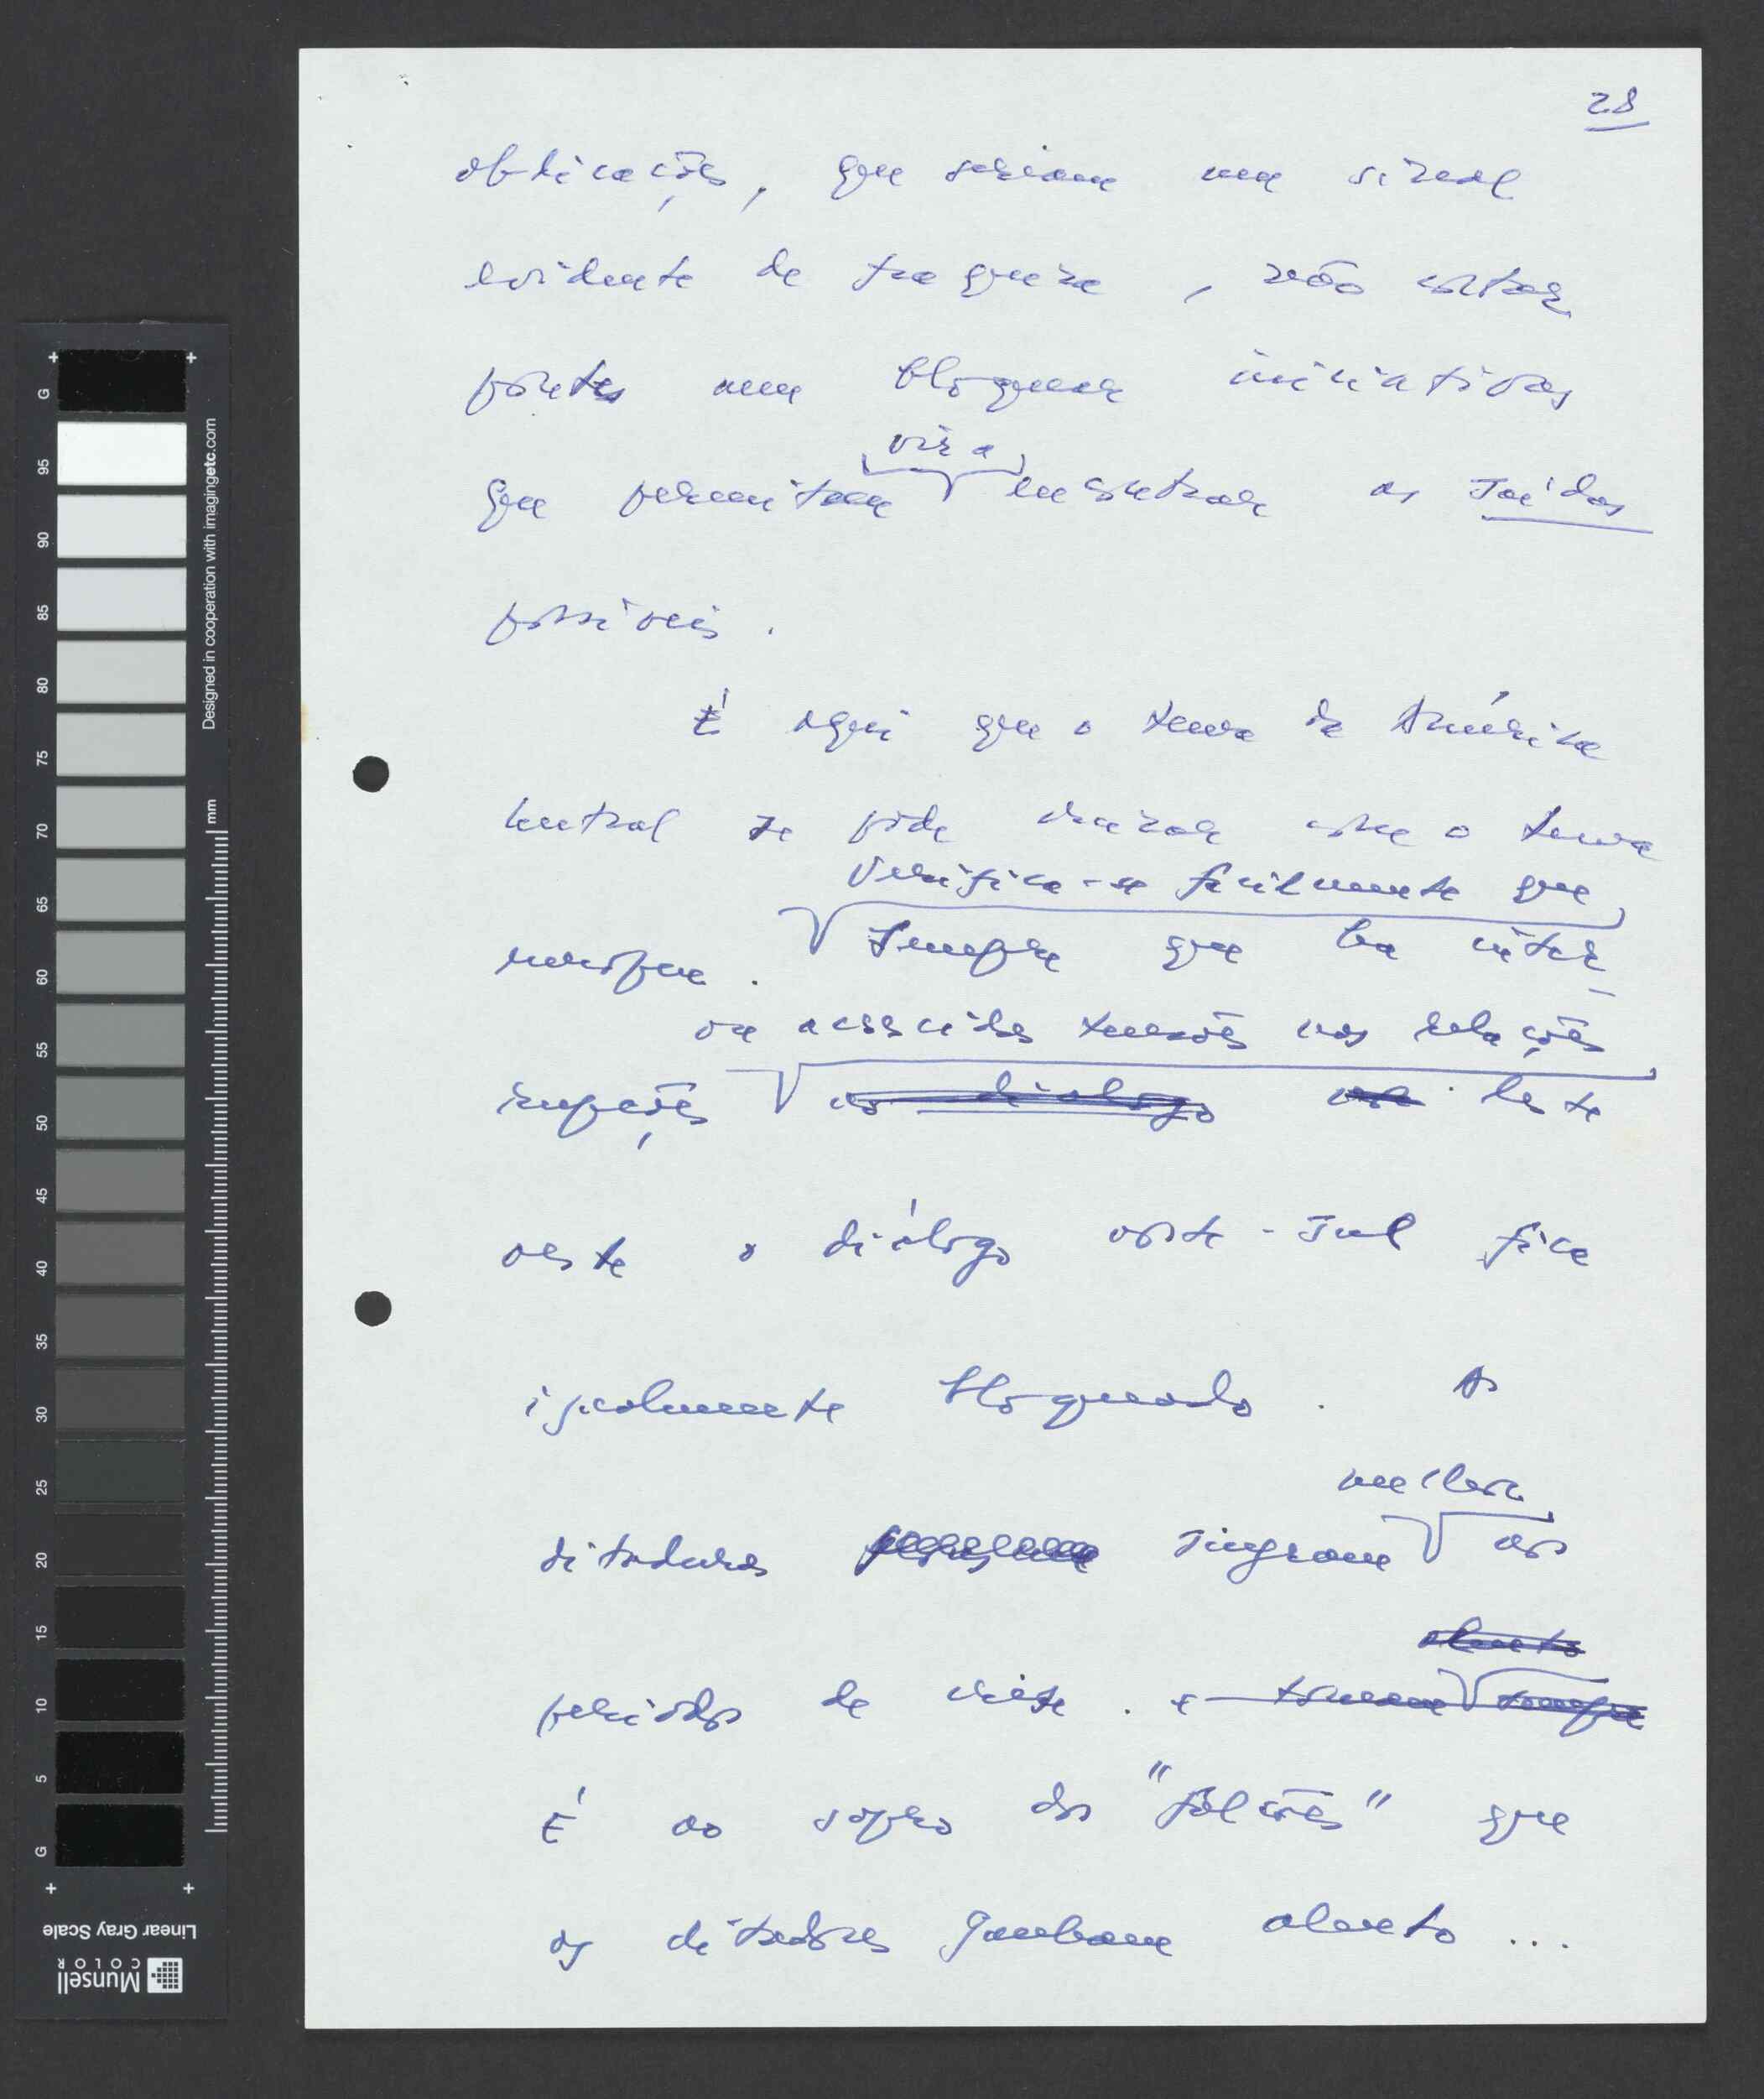 28
abdicações, que seriam um sinal
evidente de fraqueza, não cortar
pontes nem bloquear iniciativas
vir a
que permitam encontrar as saídas
possíveis.
É aqui que o tema da América
Central se pode cruzar com o tema
Verifica-se facilmente que
europeu. Sempre que há inter-
ou acrescidas tensões nas relações
rupções no diálogo leste
oeste o diálogo norte-sul fica
igualmente bloqueado. As
melhor
ditaduras singram nos
alento
períodos de crise. e tomam sempre
É ao sopro dos "falcões" que
os ditadores ganham alento ...
G
95
90
85
80
75
70
65
60
55
50
45
40
35
30
25
20
15
10
5
G
mm
Designed in cooperation with imagingetc.com
Linear Gray Scale
Munsell
COLOR